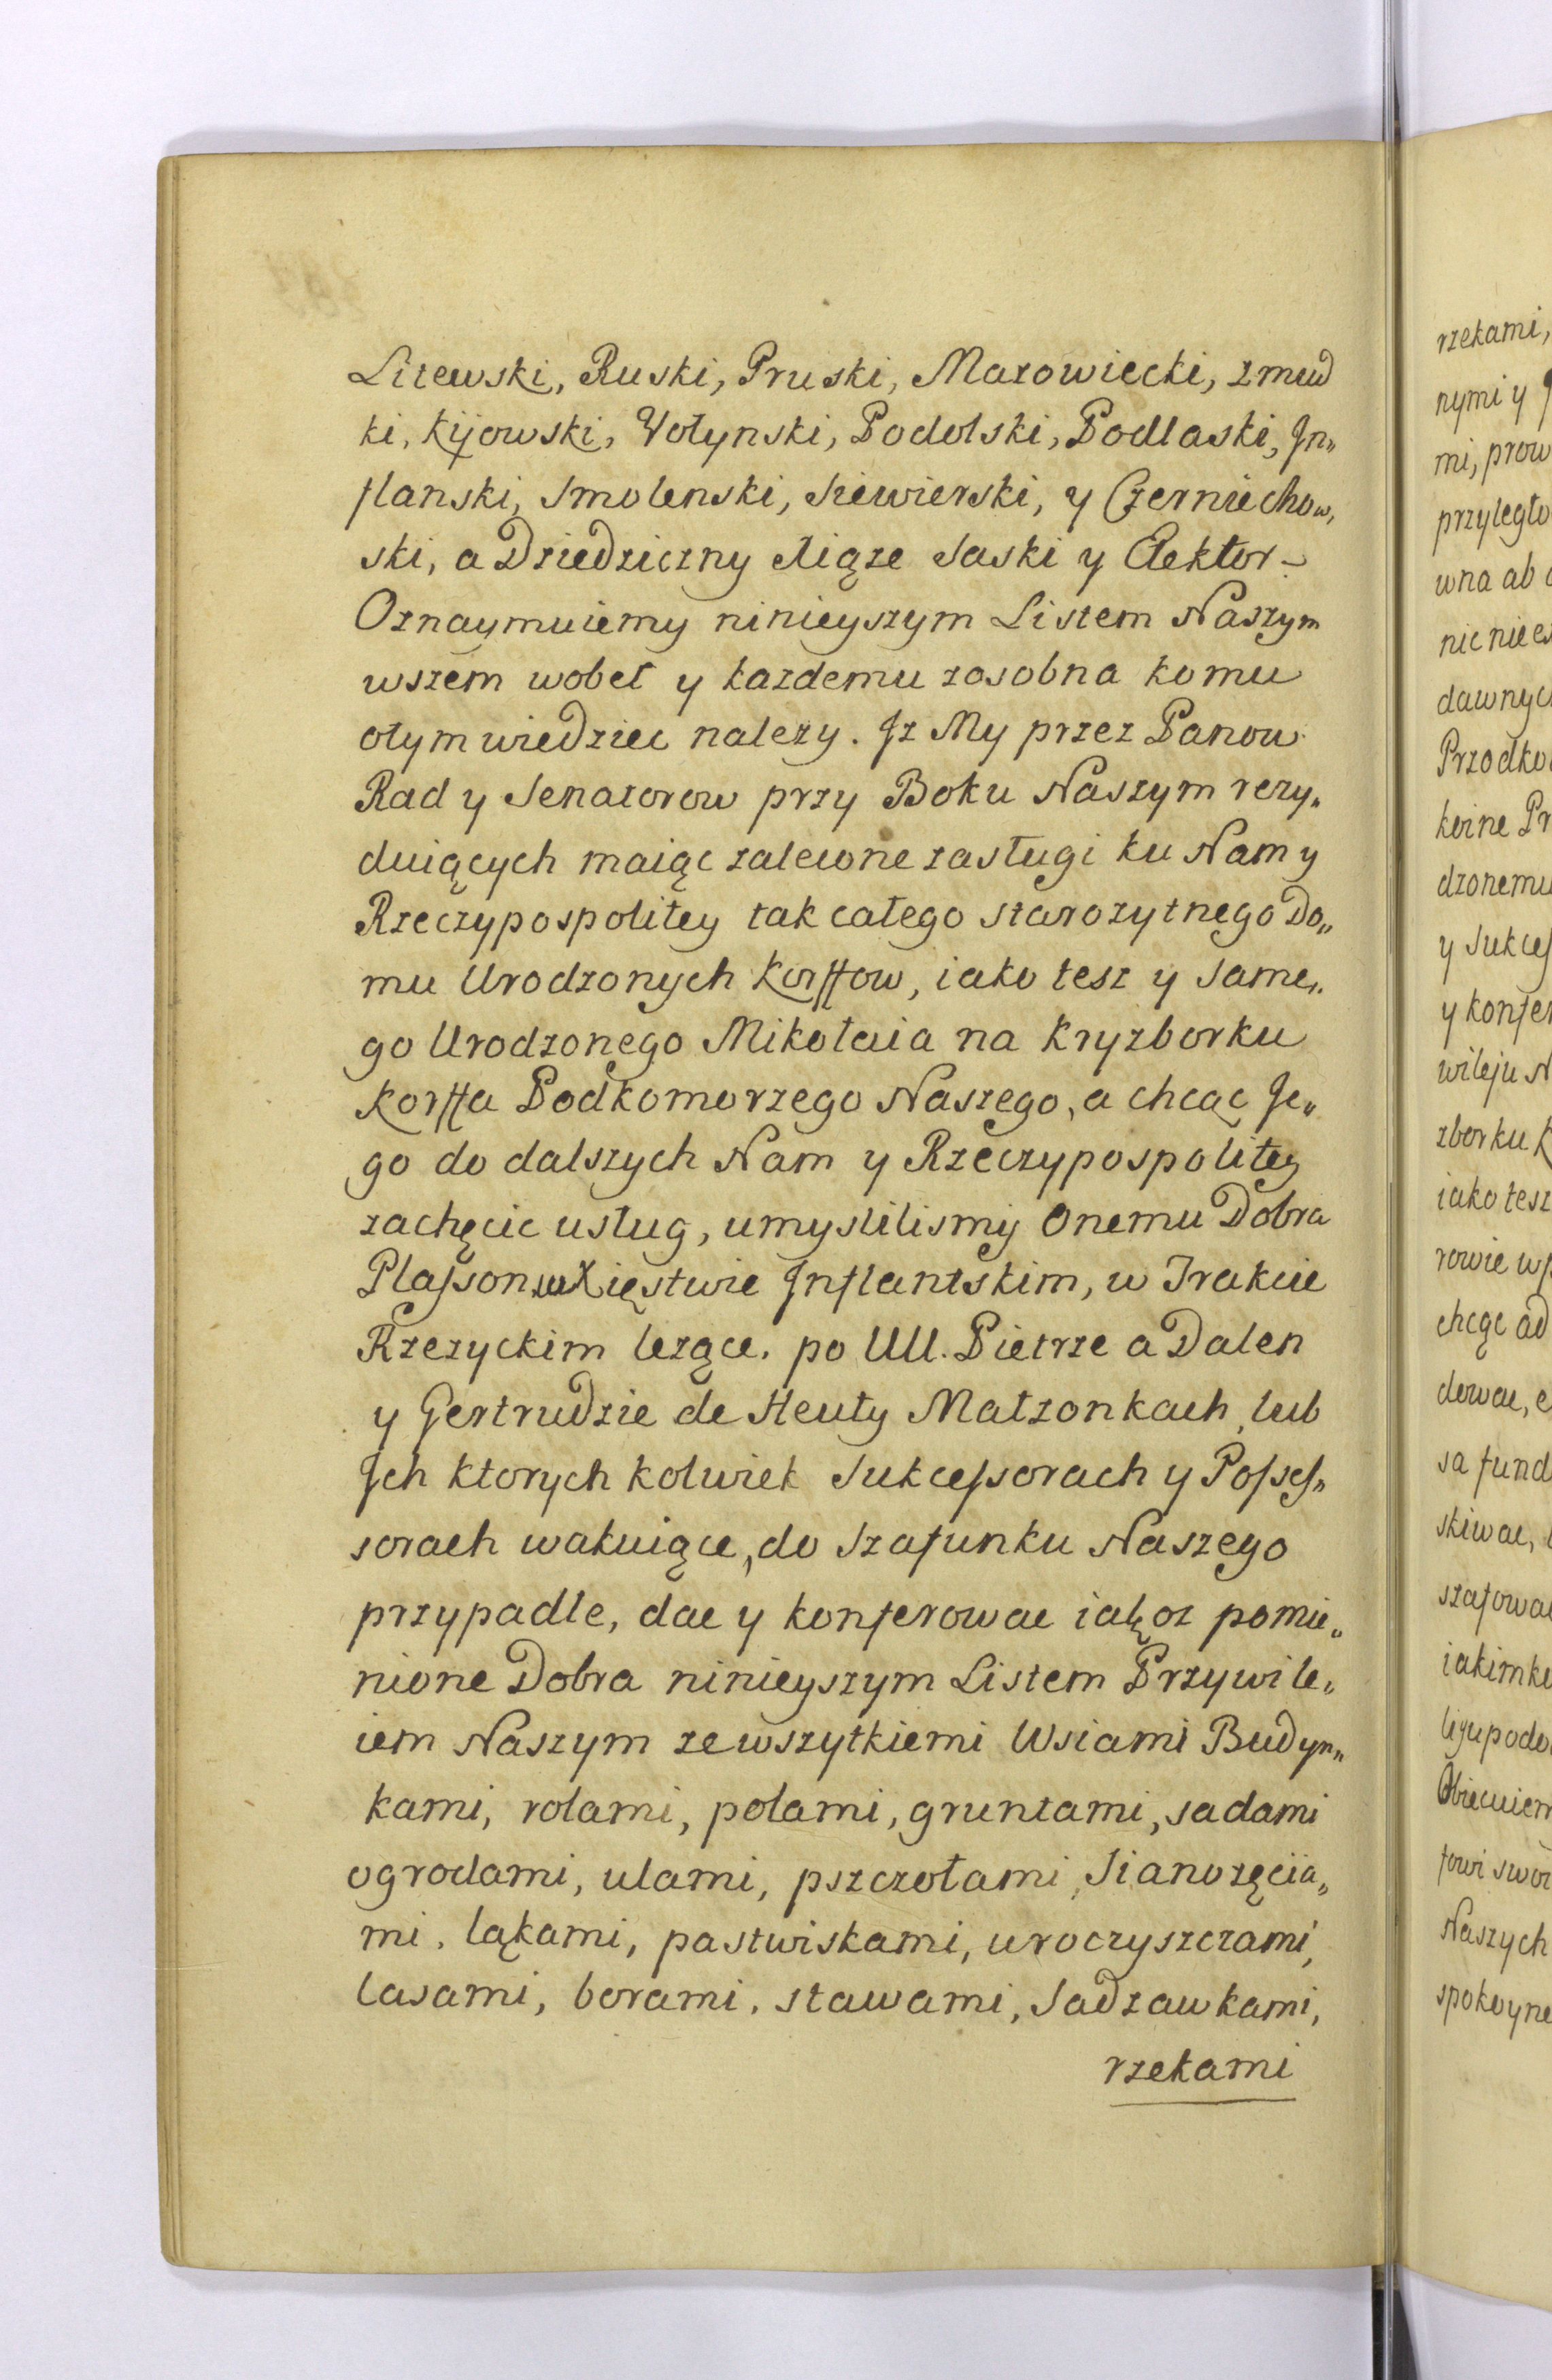 Litewski, Ruski, Pruski, Mazowiecki, zmud
ki, Kijowski, Wołynski, Podolski, Podlaski, Jn„
flanski, Smolenski, Siewierski, y Czerniechow„
ski, a Dziedziczny Xiąze Saski y Elektor –
Oznaymuiemy ninieyszym Listem Naszym
wszem wobec y kazdemu zosobna komu
otym wiedziec nalezy. Jz My przez Panow
Rad y Senatorow przy Boku Naszym rezy„
duiących maiąc zalecone zasługi ku Nam y
Rzeczypospolitey tak całego starozytnego Do„
mu Urodzonych Korffow, iako tesz y same„
go Urodzonego Mikołaia na Kryzborku
Korffa Podkomorzego Naszego, a chcąc Je„
go do dalszych Nam y Rzeczypospolitey
zachęcic usług, umyslilismy Onemu Dobra
Plasson w Xięstwie Jnflantskim, w Trakcie
Rzezyckim lezące. po UU. Pietrze a Dalen
y Gertrudzie de Heuty Małzonkach, lub
Jch ktorych kolwiek Sukcessorach y Posses„
sorach wakuiące, do Szafunku Naszego
przypadle, dac y konferowac iakoz pomie„
nione Dobra ninieyszym Listem Przywile„
iem Naszym ze wszytkiemi Wsiami Budyn„
kami, rolami, polami, gruntami, sadami
ogrodami, ulami, pszczołami, Sianozęcia„
mi, ląkami, pastwiskami, uroczyszczami,
lasami, borami, stawami, Sadzawkami,
rzekami
rzekami,
nymi y
mi, prow
przyległo
wna ab
nic nie
dawnyc
Przodko
dzonemu
y Sukces
y konfer
wileju N
zborku K
iako tesz
rowie w
chcąc ad
dowac, e
sa fund
skiwac,
szafowac
iakimko
Obiecuiem
Naszych
spokoyne